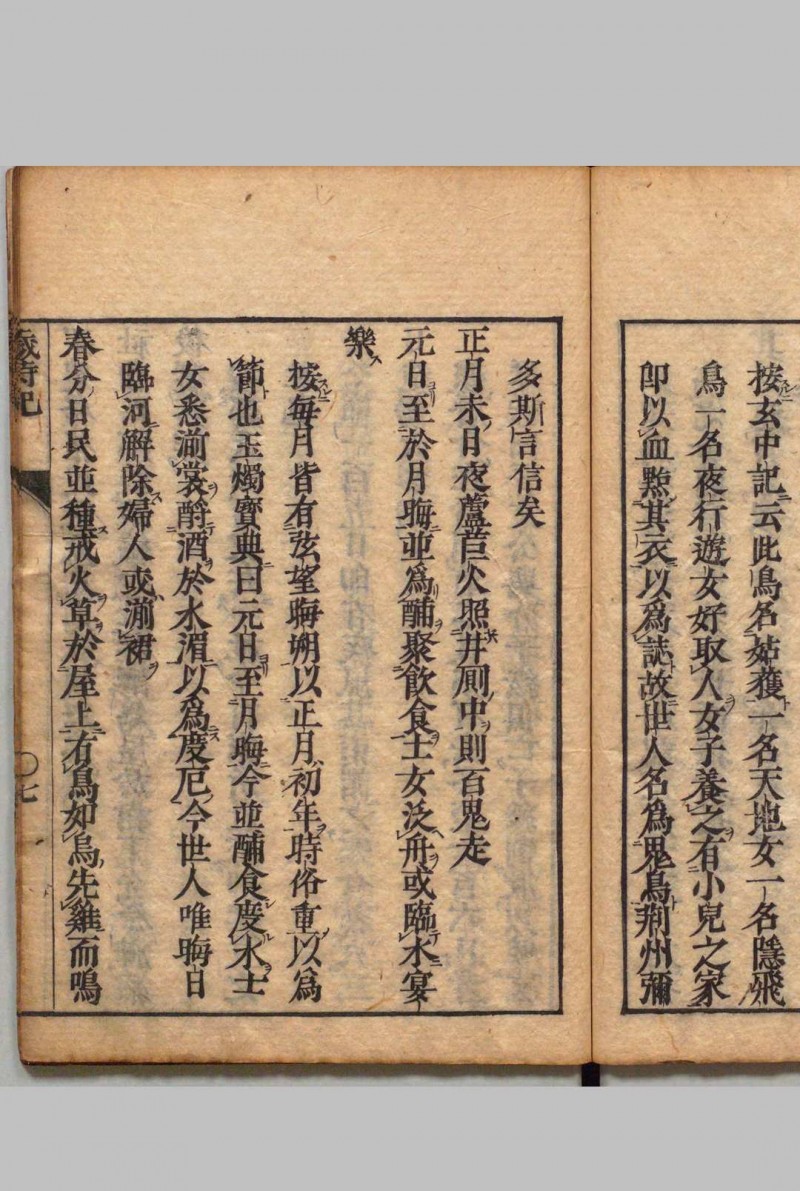 按玄中記云此鳥名姑獲一名天地女一名隱飛
鳥一名夜行遊女好取人女子養之有小兒之家
卽以血㸃其衣以爲誌故世人名爲鬼鳥荆州彌
多斯言信矣
正月未日夜蘆苣火照井厠中則百鬼走
元日至於月晦並爲酺聚飮食士女泛舟或臨水宴
樂
按每月皆有弦望晦朔以正月初年時俗重以爲
節也玉燭寶典曰元日至月晦今並酺食度水士
女悉湔裳酹酒於水湄以爲度厄今世人唯晦日
臨河解除婦人或湔裙
春分日民並種戒火草於屋上有鳥如烏先雞而鳴
歲時記
〇七